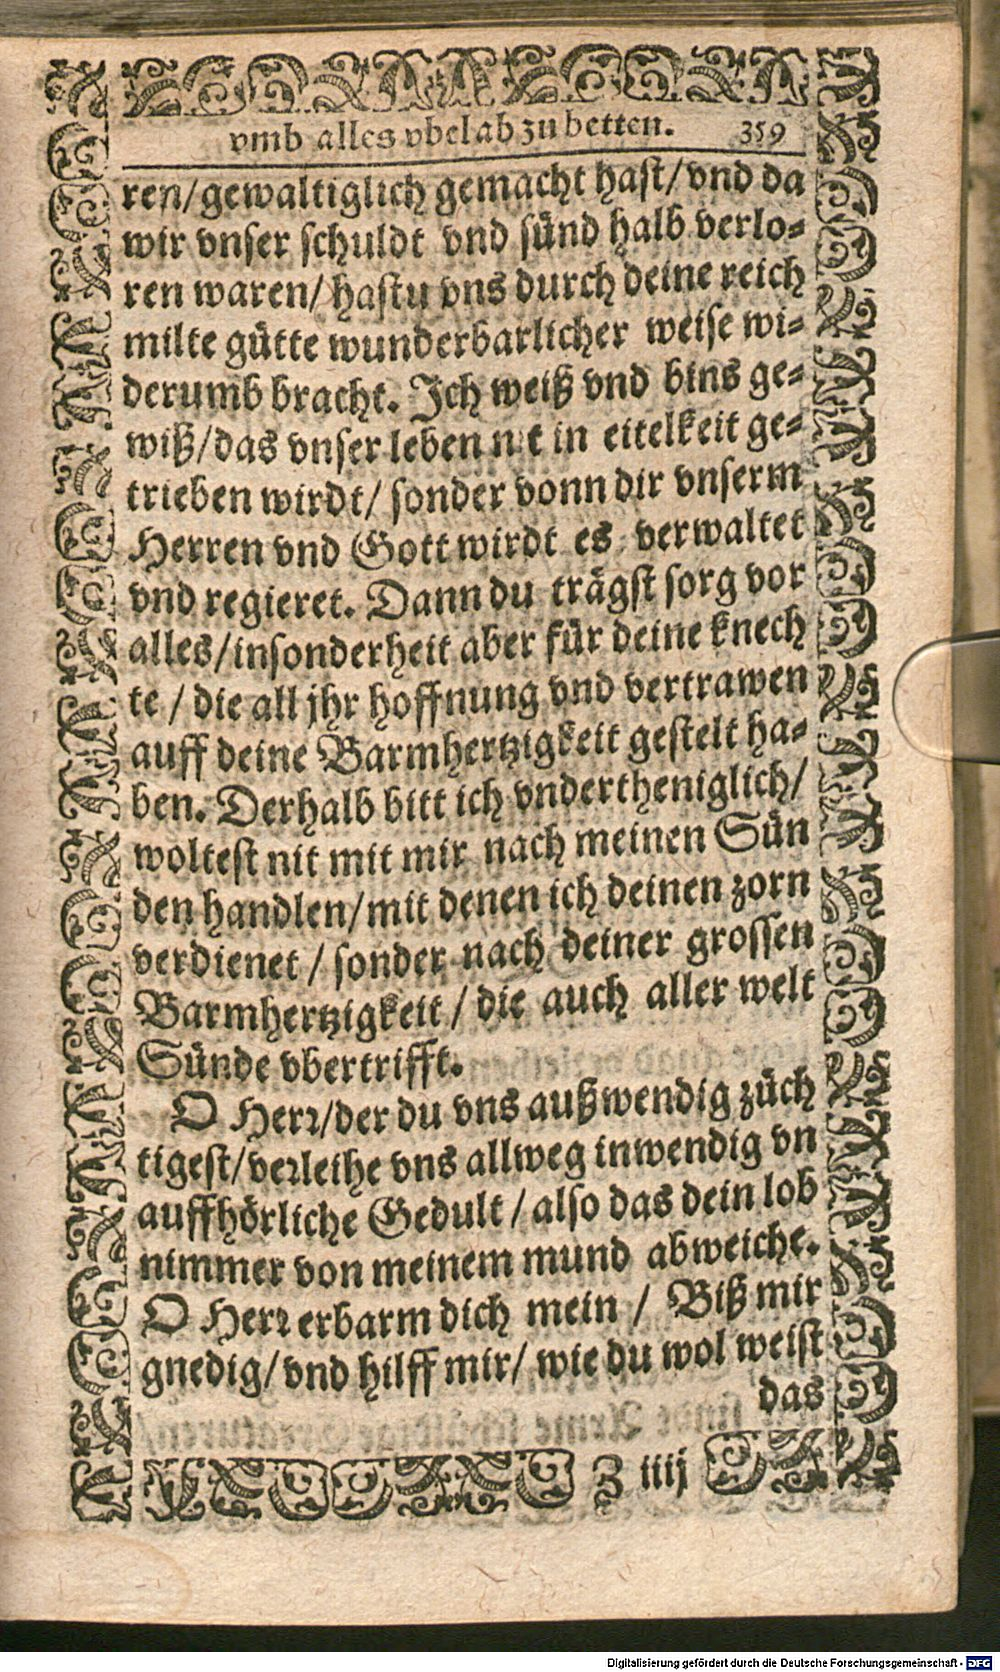 vmb alles vbel ab zu betten. 359
ren/gewaltiglich gemacht hast/vnd da
wir vnser schuldt vnd sünd halb verlo-
ren waren/hastu vns durch deine reich
milte gütte wunderbarlicher weise wi-
derumb bracht. Ich weiß vnd bins ge-
wiß/das vnser leben nit in eitelkeit ge-
trieben wirdt/ sonder vonn dir vnserm
Herren vnd Gott wirdt es verwaltet
vnd regieret. Dann du trägst sorg vor
alles/insonderheit aber für deine knech
te / die all jhr hoffnung vnd vertrawen
auff deine Barmhertzigkeit gestelt ha-
ben. Derhalb bitt ich vndertheniglich/
woltest nit mit mir nach meinen Sün
den handlen/mit denen ich deinen zorn
verdienet / sonder nach deiner grossen
Barmhertzigkeit / die auch aller welt
Sünde vbertrifft.
O Herr/der du vns außwendig züch
tigest/verleihe vns allweg inwendig vn
auffhörliche Gedult / also das dein lob
nimmer von meinem mund abweiche.
O Herr erbarm dich mein / Biß mir
gnedig/vnd hilff mir/ wie du wol weist
das
Z iiij
Digitalisierung gefördert durch die Deutsche Forschungsgemeinschaft - DFG